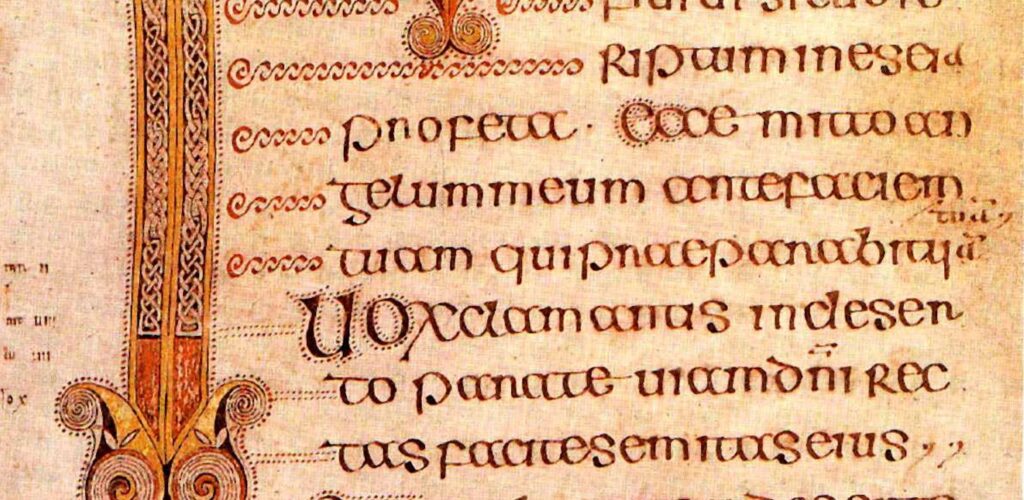 riptum in eseia
profeta · Ecce mitto an
gelum meum ante faciem
tuā
tuam qui praeparabit uiā
Uox clamantis in deser
to parate uiam dn̄i rec
tas facite semitas eius